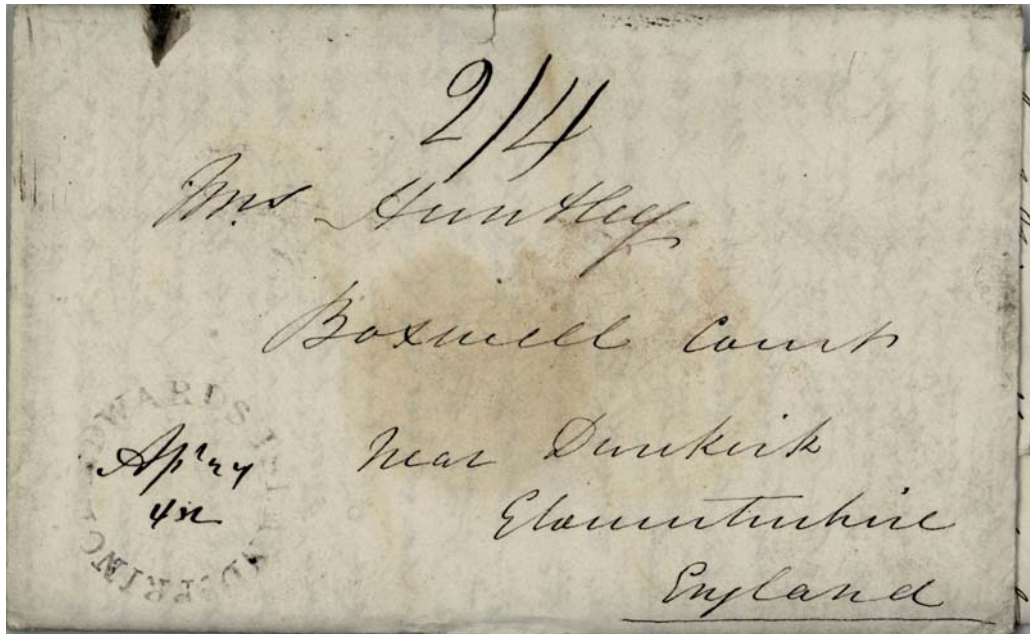 2/4
Mrs Huntley
Boxwell Court
near Dunkirk
Gloucestershire
England
PRINCE EDWARDS ISLAND
Apl 27
42